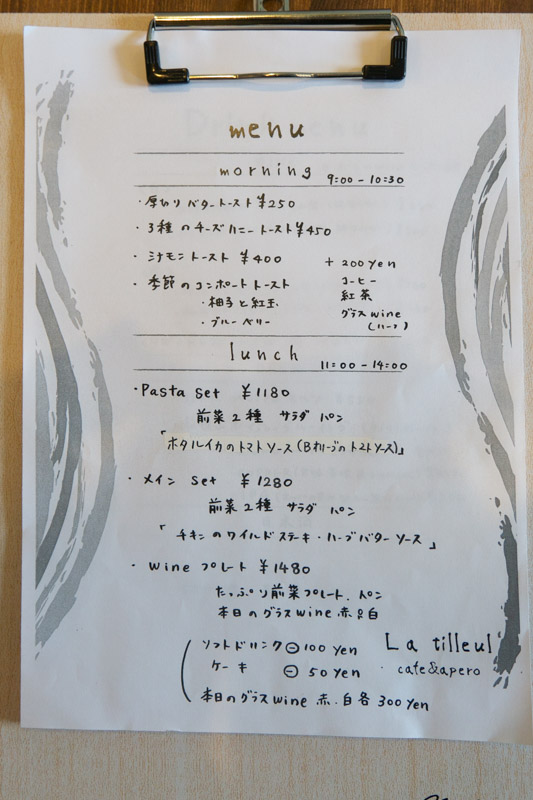 menu
morning 9:00 - 10:30
・厚切りバタートースト ¥250
・3種のチーズハニートースト ¥450
・シナモントースト ¥400 + 200 yen
・季節のコンポートトースト コーヒー
・柚子と紅玉 紅茶
・ブルーベリー グラスwine
(ハーフ)
lunch 11:00 - 14:00
・Pasta set ¥1180
前菜2種 サラダ パン
「ホタルイカのトマトソース(Bオリーブのトマトソース)」
・メイン set ¥1280
前菜2種 サラダ パン
「チキンのワイルドステーキ・ハーブバターソース」
・wine プレート ¥1480
たっぷり前菜プレート、パン
本日のグラスwine 赤or白
ソフトドリンク ⊖ 100 yen
ケーキ ⊖ 50 yen
本日のグラスwine 赤・白各 300 yen
La tilleul
cafe&apero